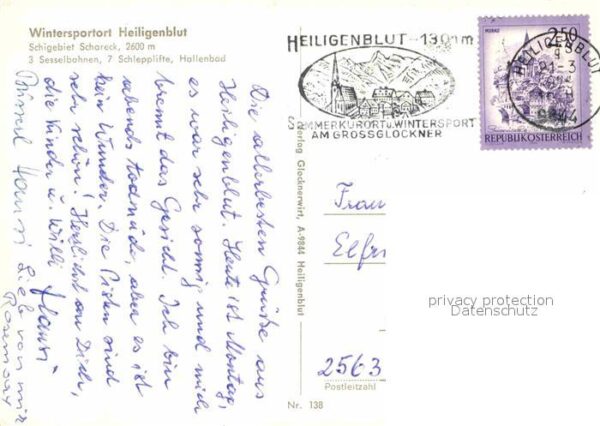 Wintersportort Heiligenblut
Schigebiet Schareck, 2600 m
3 Sesselbahnen, 7 Schlepplifte, Hallenbad
Die allerbesten Grüße aus
Heiligenblut. Heute ist Montag,
es war sehr sonnig und mich
brennt das Gesicht. Ich bin
abends todmüde, aber es ist
kein Wunder. Die Pisten sind
sehr schön! Herzlichst an Dich,
die Kinder u. Willi Hansi
Bussi Hansi
Lieb von mir
Rosemary
Verlag Glocknerwirt, A-9844 Heiligenblut
Nr. 138
HEILIGENBLUT-130 m
SOMMERKURORT u. WINTERSPORT
AM GROSSGLOCKNER
MURAU
2.50
REPUBLIK ÖSTERREICH
HEILIGENBLUT
9844
Frau
Elfr
2563
Postleitzahl
privacy protection
Datenschutz